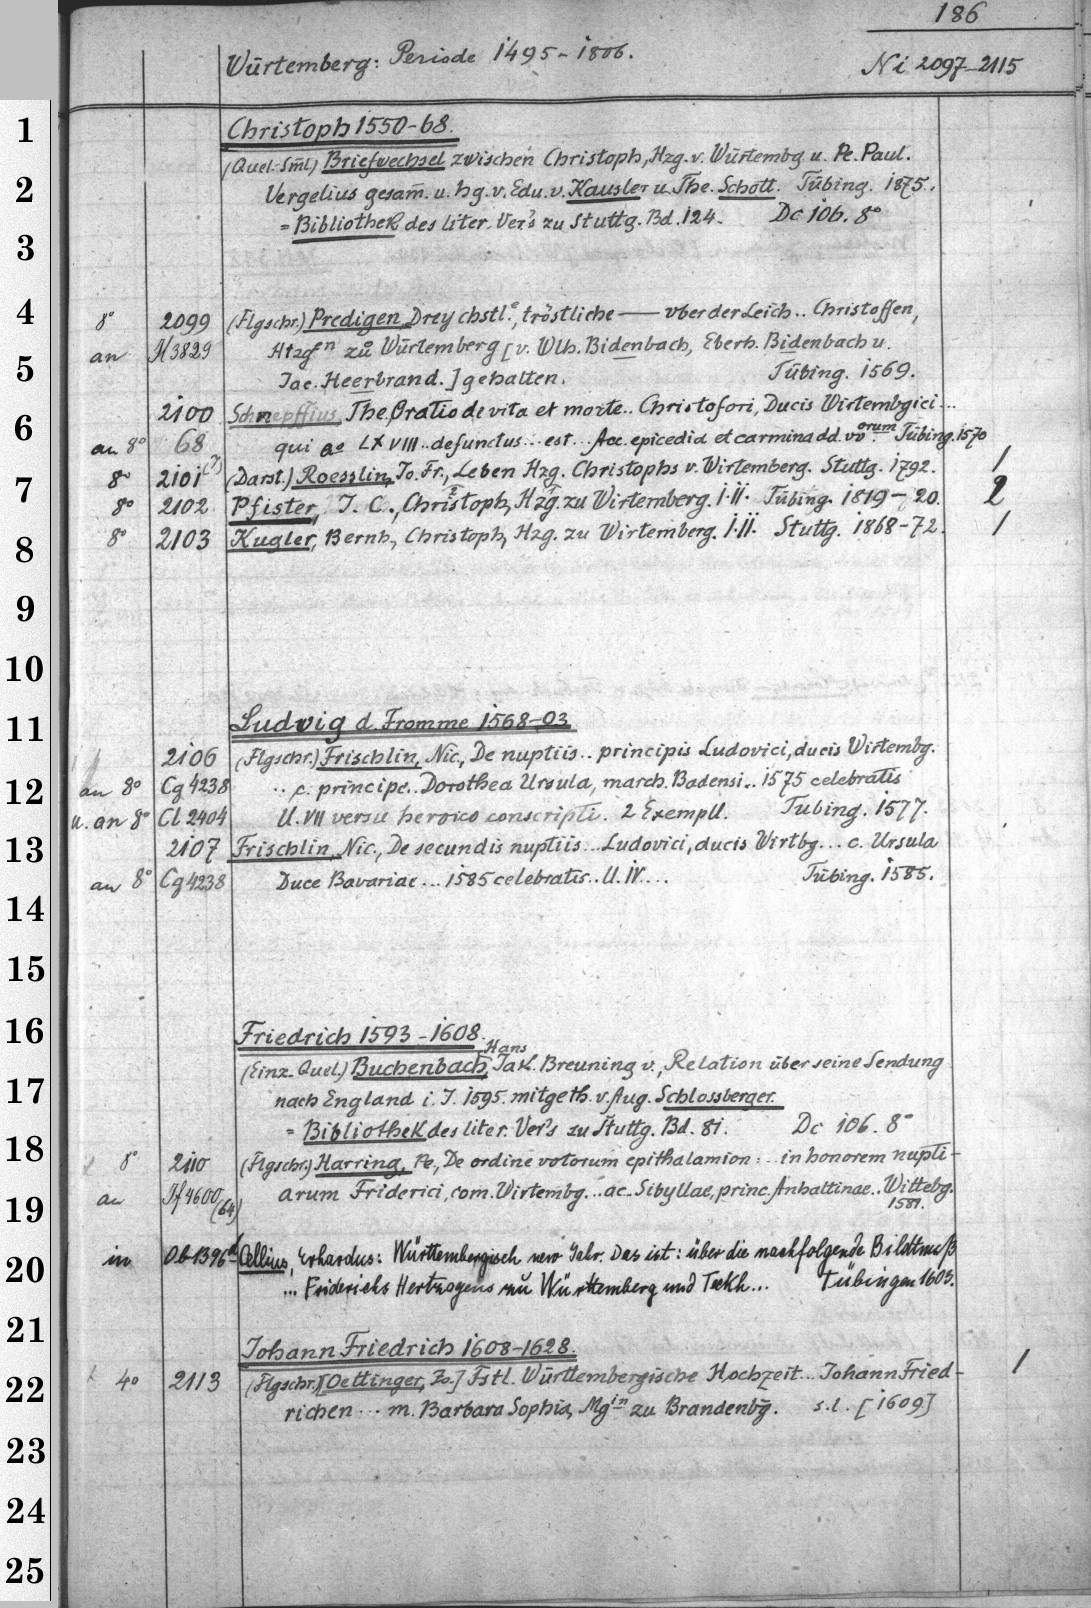 186
Würtemberg: Periode 1495-1806.
Ni 2097-2115
1
Christoph 1550-68.
(Quel-Sm̄l) Briefwechsel zwischen Christoph, Hzg. v. Würtembg u. Pe. Paul.
2
Vergelius gesam̄. u. hg. v. Edu. v. Kausler u. The. Schott. Tübing. 1875.
= Bibliothek des liter. Ver's zu Stuttg. Bd. 124. Dc 106. 8°
3
4
8° 2099 (Flgschr.) Predigen, Drey chstl.e, tröstliche — vber der Leich .. Christoffen,
an 3829 Htzgen zů Würtemberg [v. Wlh. Bidenbach, Eberh. Bidenbach u.
5
Jac. Heerbrand.] gehalten. Tübing. 1569.
2100 Schnepffius, The. Oratio de vita et morte .. Christofori, Ducis Wirtembgici ...
6
an 8° 68 qui ao LXVIII .. defunctus .. est .. Acc. epicedia et carmina dd. vvorum Tübing. 1570
8° 2101(?) (Darst.) Roesslin, Jo. Fr., Leben Hzg. Christophs v. Wirtemberg. Stuttg. 1792. 1
7
8° 2102 Pfister, J. C., Christoph, Hzg. zu Wirtemberg. I.II. Tübing. 1819-20. 2
8° 2103 Kugler, Bernh., Christoph, Hzg. zu Wirtemberg. I.II. Stuttg. 1868-72. 1
8
9
10
11
Ludwig d. Fromme 1568-03
2106 (Flgschr.) Frischlin, Nic., De nuptiis .. principis Ludovici, ducis Wirtembg.
12
an 8° Cg 4238 .. c. principe .. Dorothea Ursula, march. Badensi .. 1575 celebratis
u. an 8° Cl 2404 ll. VII versu heroico conscripti. 2 Exempll. Tubing. 1577.
13
2107 Frischlin, Nic., De secundis nuptiis ... Ludovici, ducis Wirtbg ... c. Ursula
an 8° Cg 4238 Duce Bavariae ... 1585 celebratis .. ll. IV .... Tübing. 1585.
14
15
16
Friedrich 1593-1608.
(Einz. Quel.) Buchenbach, Hans Jak. Breuning v., Relation über seine Sendung
17
nach England i. J. 1595. mitgeth. v. Aug. Schlossberger.
= Bibliothek des liter. Ver's zu Stuttg. Bd. 81. Dc 106. 8°
18
8° 2110 (Flgschr.) Harring, Pe., De ordine votorum epithalamion: .. in honorem nupti-
an If 4600 (64) arum Friderici, com. Wirtembg. .. ac .. Sibyllae, princ. Anhaltinae .. Wittebg. 1581.
19
in Ob 1396d Cellius, Erhardus: Württembergisch new Jahr. Das ist: über die nachfolgende Bildtnuß
20
... Friderichs Hertzogens zu Württemberg und Teckh ... Tübingen 1603.
21
Johann Friedrich 1608-1628. 1
22
4° 2113 (Flgschr.) [Oettinger, Jo.] Fstl. Württembergische Hochzeit .. Johann Fried-
richen ... m. Barbara Sophia, Mgin zu Brandenbg. s.l. [1609]
23
24
25